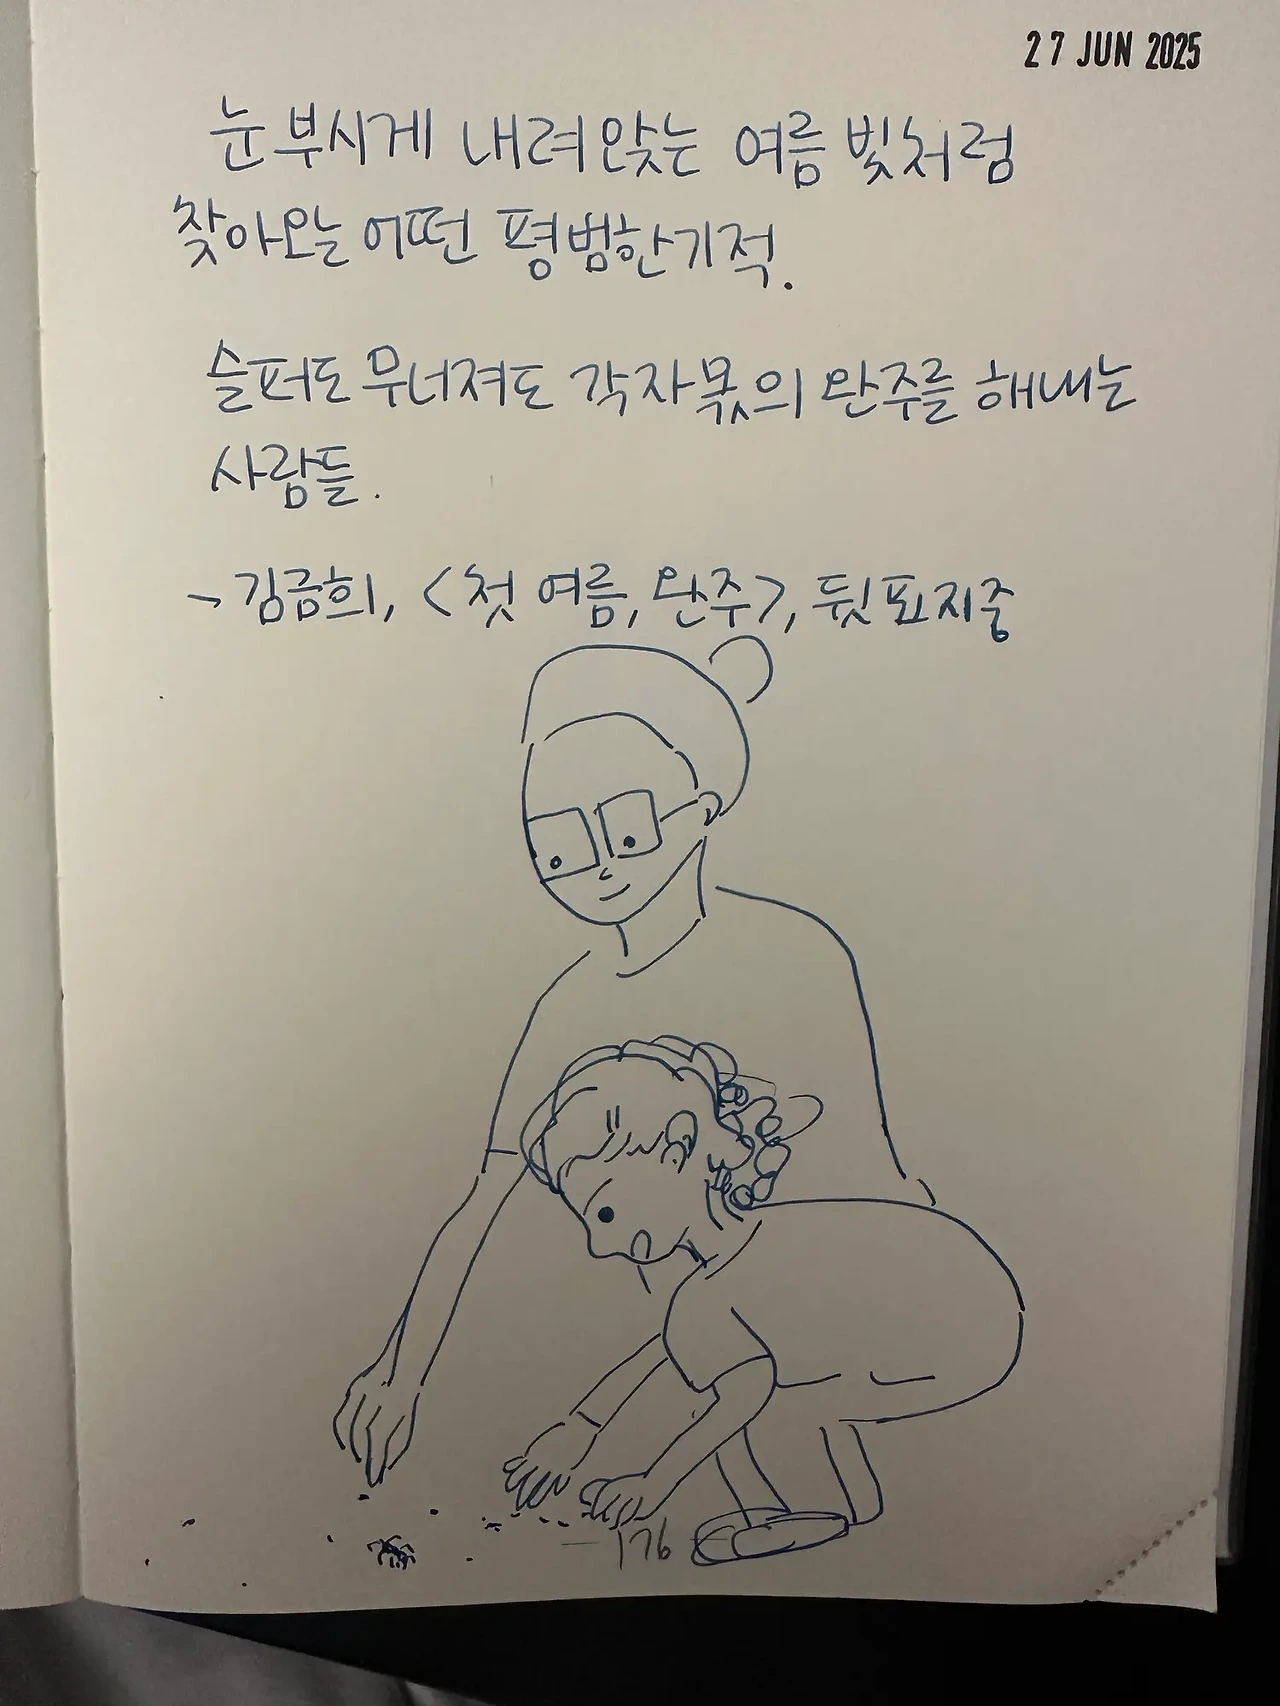 27 JUN 2025
눈부시게 내려앉는 여름 빛처럼
찾아오는 어떤 평범한 기적.
슬퍼도 무너져도 각자 몫의 완주를 해내는
사람들.
- 김금희, <첫 여름, 완주>, 뒷표지중
- 176 -